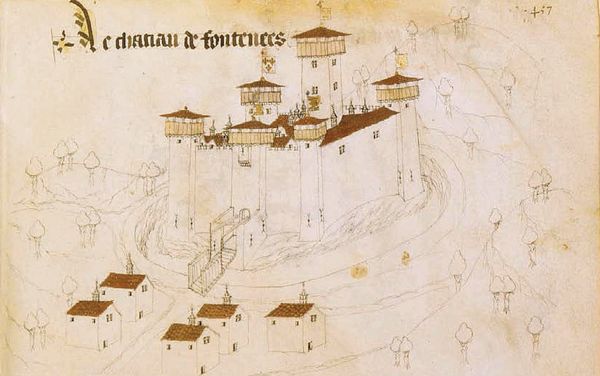 Le chatiau de fontenees